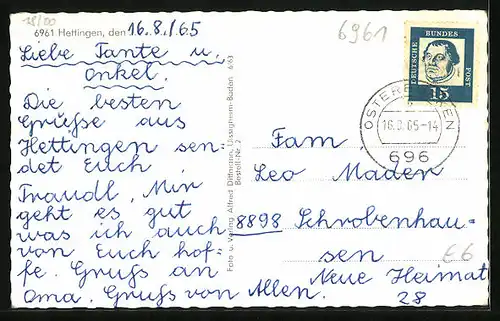 18/00
6961 Hettingen, den 16.8./65
6961
DEUTSCHE BUNDES POST
15
OSTERBURKEN
16.8.65-14
696
Liebe Tante u.
Onkel.
Die besten
Grüße aus
Hettingen sen=
det Euch
Traudl, Mir
geht es gut
was ich auch
von Euch hof=
fe. Gruß an
Oma. Gruß von Allen.
Foto u. Verlag Alfred Dittmann, Uissigheim-Baden 6/63
Bestell-Nr. 2
Fam
Leo Mader
8898 Schrobenhau=
sen
Neue Heimat
28
€6